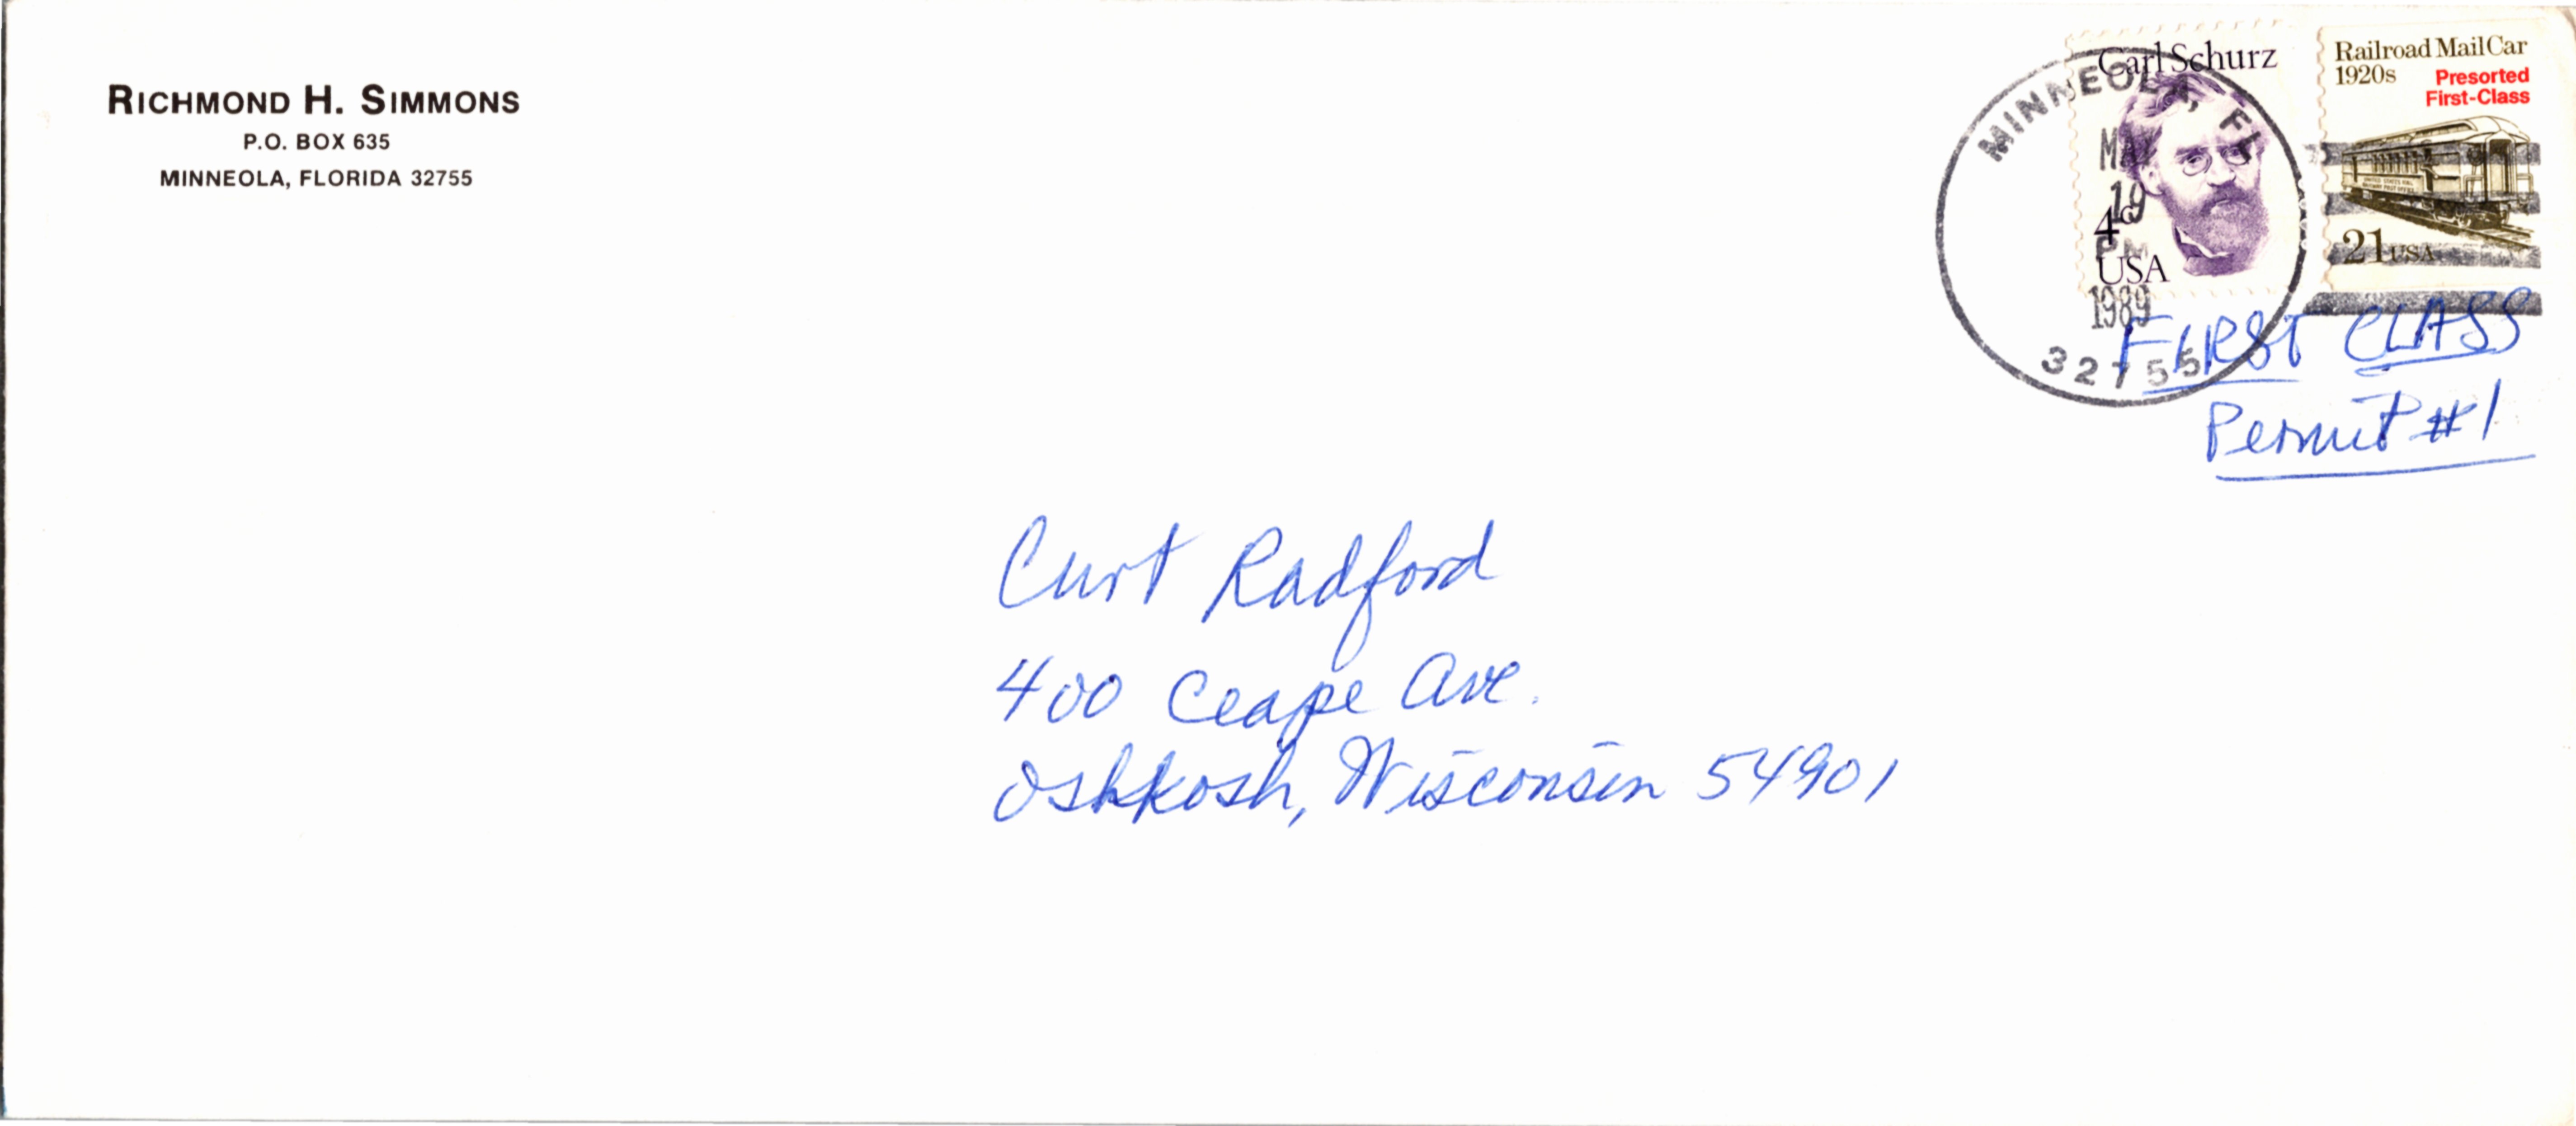 RICHMOND H. SIMMONS
P.O. BOX 635
MINNEOLA, FLORIDA 32755
Carl Schurz
4c
USA
Railroad Mail Car
1920s
Presorted
First-Class
UNITED STATES MAIL
21 USA
MINNEOLA, FL
MAY
19
PM
1989
32755
FIRST CLASS
Permit #1
Curt Radford
400 Ceape Ave.
Oshkosh, Wisconsin 54901